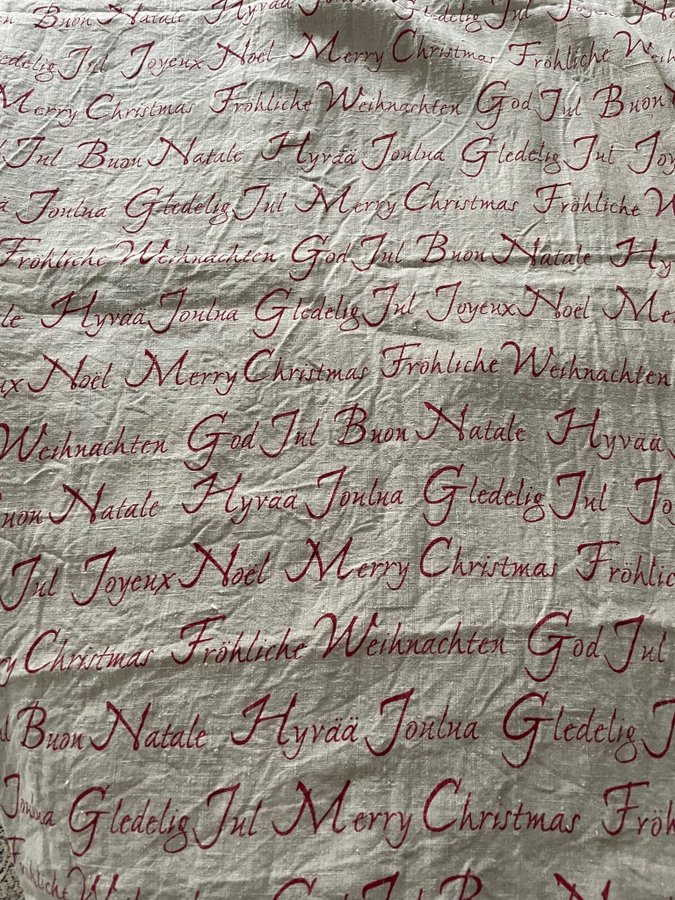 Buon Natale Hyvää Joulua Gledelig Jul
Gledelig Jul Joyeux Noël Merry Christmas Fröhliche
Merry Christmas Fröhliche Weihnachten God Jul Buon
Jul Buon Natale Hyvää Joulua Gledelig Jul
Joulua Gledelig Jul Merry Christmas Fröhliche
Fröhliche Weihnachten God Jul Buon Natale
Hyvää Joulua Gledelig Jul Joyeux Noël
Noël Merry Christmas Fröhliche Weihnachten
Weihnachten God Jul Buon Natale Hyvää
Natale Hyvää Joulua Gledelig Jul
Jul Joyeux Noël Merry Christmas
Christmas Fröhliche Weihnachten God Jul
Buon Natale Hyvää Joulua Gledelig
Joulua Gledelig Jul Merry Christmas
Fröhliche